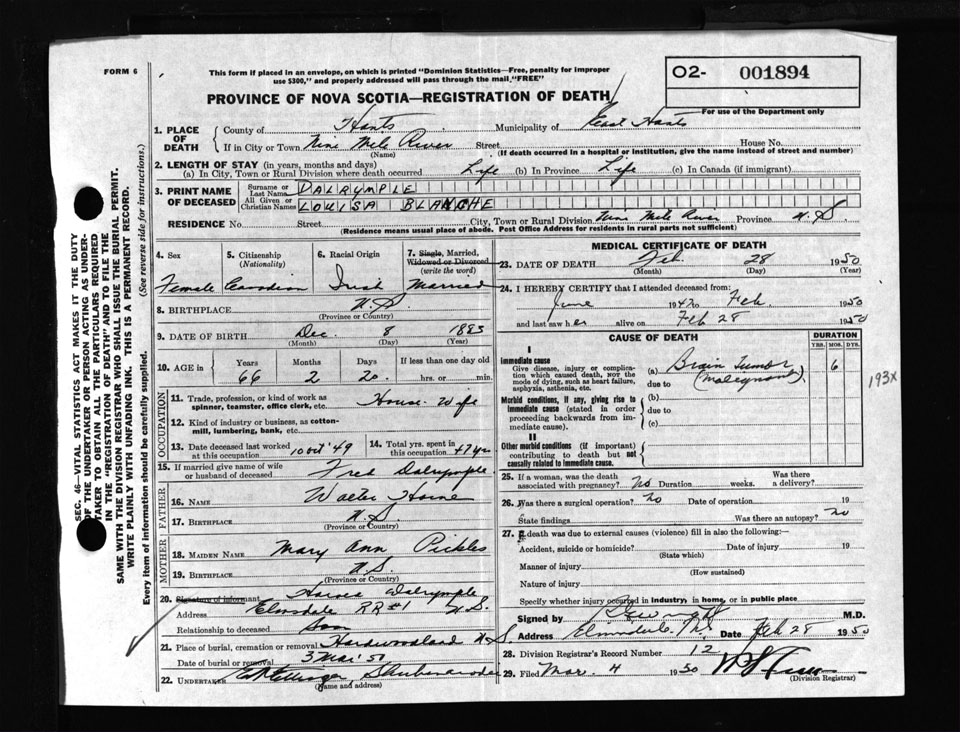 FORM 6
This form if placed in an envelope, on which is printed "Dominion Statistics—Free, penalty for improper
use $300," and properly addressed will pass through the mail "FREE"
O2- 001894
PROVINCE OF NOVA SCOTIA—REGISTRATION OF DEATH
For use of the Department only
1. PLACE OF DEATH
County of Hants Municipality of East Hants
If in City or Town Nine Mile River Street House No.
(Name) (If death occurred in a hospital or institution, give the name instead of street and number)
2. LENGTH OF STAY (in years, months and days)
(a) In City, Town or Rural Division where death occurred Life (b) In Province Life (c) In Canada (if immigrant)
3. PRINT NAME OF DECEASED
Surname or Last Name DALRYMPLE
All Given or Christian Names LOUISA BLANCHE
RESIDENCE No. Street City, Town or Rural Division Nine Mile River Province N.S.
(Residence means usual place of abode. Post Office Address for residents in rural parts not sufficient)
SEC. 46—VITAL STATISTICS ACT MAKES IT THE DUTY
OF THE UNDERTAKER OR PERSON ACTING AS UNDER-
TAKER TO OBTAIN ALL THE PARTICULARS REQUIRED
IN THE "REGISTRATION OF DEATH" AND TO FILE THE
SAME WITH THE DIVISION REGISTRAR WHO SHALL ISSUE THE BURIAL PERMIT.
WRITE PLAINLY WITH UNFADING INK. THIS IS A PERMANENT RECORD.
Every item of information should be carefully supplied. (See reverse side for instructions.)
4. Sex 5. Citizenship (Nationality) 6. Racial Origin 7. Single, Married, Widowed or Divorced (write the word)
Female Canadian Irish Married
8. BIRTHPLACE N.S.
(Province or Country)
9. DATE OF BIRTH Dec. 8 1883
(Month) (Day) (Year)
10. AGE in Years Months Days If less than one day old
66 2 20 hrs. or min.
OCCUPATION
11. Trade, profession, or kind of work as
spinner, teamster, office clerk, etc. House Wife
12. Kind of industry or business, as cotton-
mill, lumbering, bank, etc.
13. Date deceased last worked at this occupation 10 Oct '49 14. Total yrs. spent in this occupation 47 yrs
15. If married give name of wife
or husband of deceased Fred Dalrymple
FATHER
16. NAME Walter Horne
17. BIRTHPLACE N.S.
(Province or Country)
MOTHER
18. MAIDEN NAME Mary Ann Pickles
19. BIRTHPLACE N.S.
(Province or Country)
20. Signature of informant Dalrymple
Address RR #1 N.S.
Relationship to deceased Son
21. Place of burial, cremation or removal Hardwoodland N.S.
Date of burial or removal 3 Mar 50
22. UNDERTAKER Shubenacadie
(Name and address)
MEDICAL CERTIFICATE OF DEATH
23. DATE OF DEATH Feb. 28 1950
(Month) (Day) (Year)
24. I HEREBY CERTIFY that I attended deceased from:
June 1947 to Feb. 1950
and last saw her alive on Feb 28 1950
CAUSE OF DEATH DURATION
YRS. MOS. DYS.
I
Immediate cause
Give disease, injury or complica-
tion which caused death, NOT the
mode of dying, such as heart failure,
asphyxia, asthenia, etc.
(a) Brain Tumor 6
due to (malignant)
193X
Morbid conditions, if any, giving rise to
immediate cause (stated in order
proceeding backwards from im-
mediate cause).
(b)
due to
(c)
II
Other morbid conditions (if important)
contributing to death but not
causally related to immediate cause.
25. If a woman, was the death
associated with pregnancy? No Duration weeks. Was there a delivery?
26. Was there a surgical operation? No Date of operation 19
State findings Was there an autopsy? No
27. If death was due to external causes (violence) fill in also the following:—
Accident, suicide or homicide? Date of injury 19
(State which)
Manner of injury
(How sustained)
Nature of injury
Specify whether injury occurred in industry, in home, or in public place
Signed by M.D.
Address Date Feb 28 1950
28. Division Registrar's Record Number 12
29. Filed Mar. 4 1950
(Division Registrar)